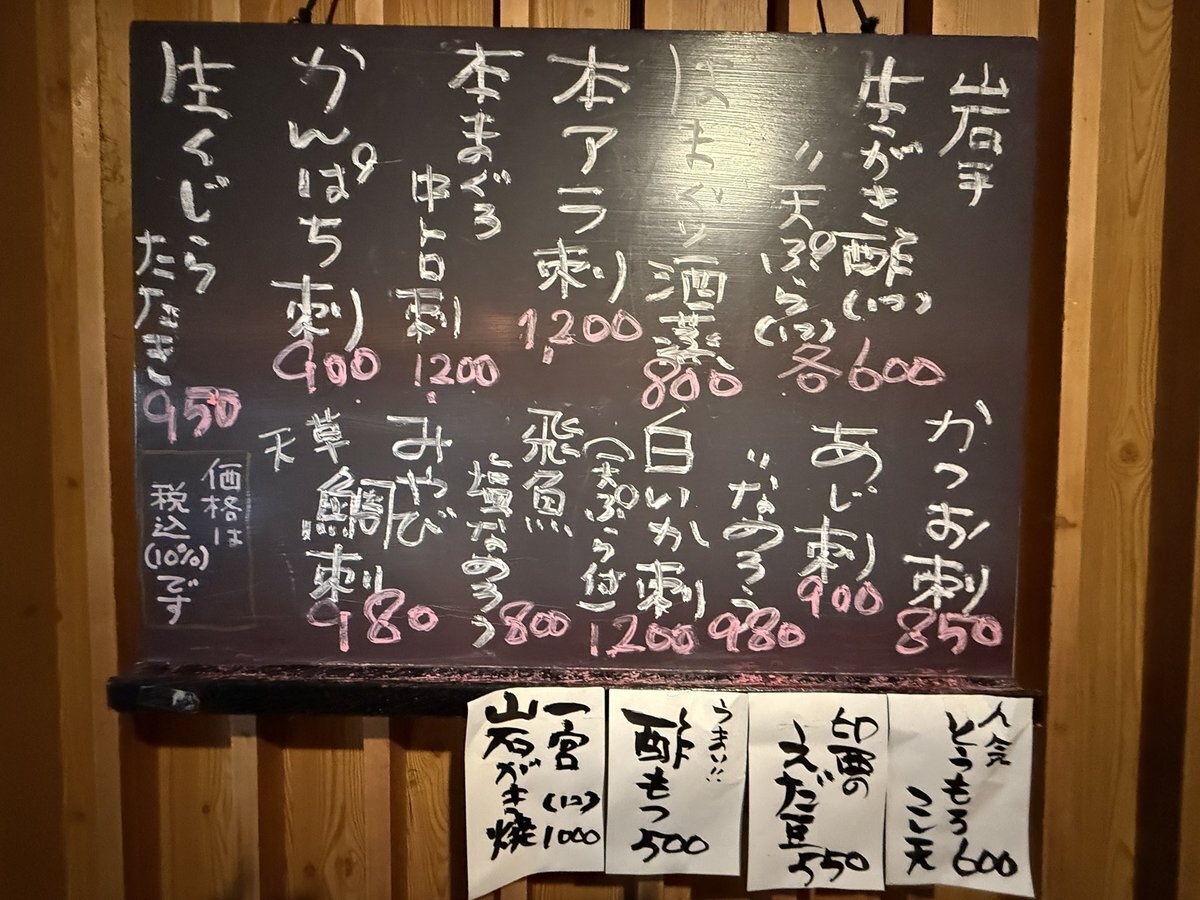 岩手
生がき酢(1コ)
〃天ぷら(1コ)
各600
はまぐり酒蒸
800
本アラ刺
1200
本まぐろ
中トロ刺
1200
かんぱち刺
900
生くじら
たたき
950
かつお刺
850
あじ刺
900
〃なめろう
980
白いか刺
(天ぷら付)
1200
飛魚
塩なめろう
800
みやび
鯛刺
980
天草
価格は
税込(10%)です
人気
とうもろこし天
600
印西の
えだ豆
550
うまい!!
酢もつ
500
一宮(1コ)
1000
岩がき焼